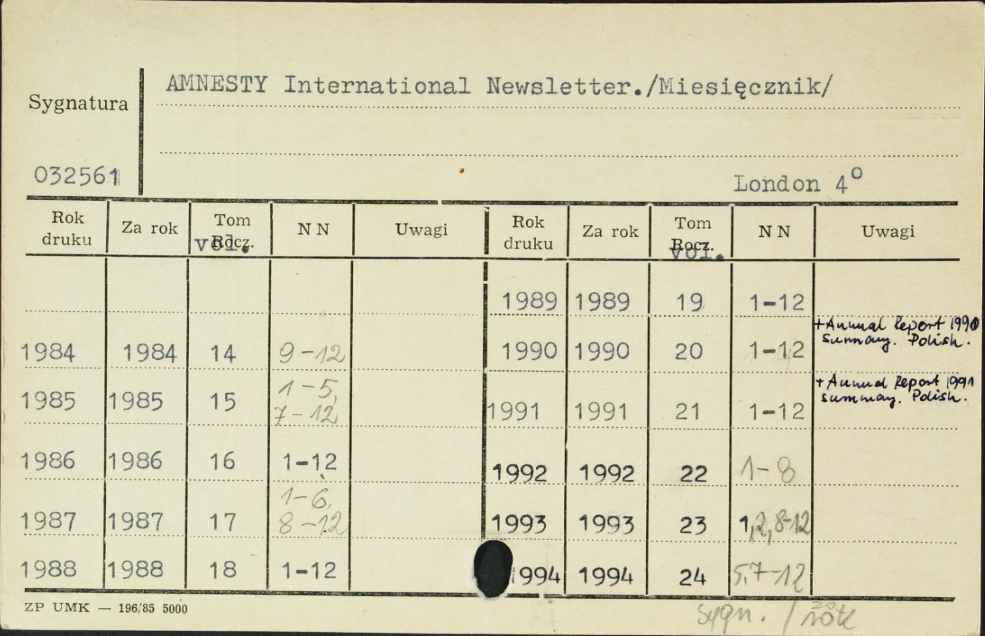 AMNESTY International Newsletter./Miesięcznik/
Sygnatura
032561
London 4°
Rok druku Za rok Tom Rocz. vol. N N Uwagi Rok druku Za rok Tom Rocz. vol. N N Uwagi
1989 1989 19 1-12
1984 1984 14 9-12 1990 1990 20 1-12 +Annual Report 1990 summary. Polish.
1985 1985 15 1-5, 7-12 1991 1991 21 1-12 +Annual Report 1991 summary. Polish.
1986 1986 16 1-12 1992 1992 22 1-8
1987 1987 17 1-6, 8-12 1993 1993 23 1,2,8-12
1988 1988 18 1-12 1994 1994 24 5,7-12
ZP UMK — 196/85 5000
sygn. / rok